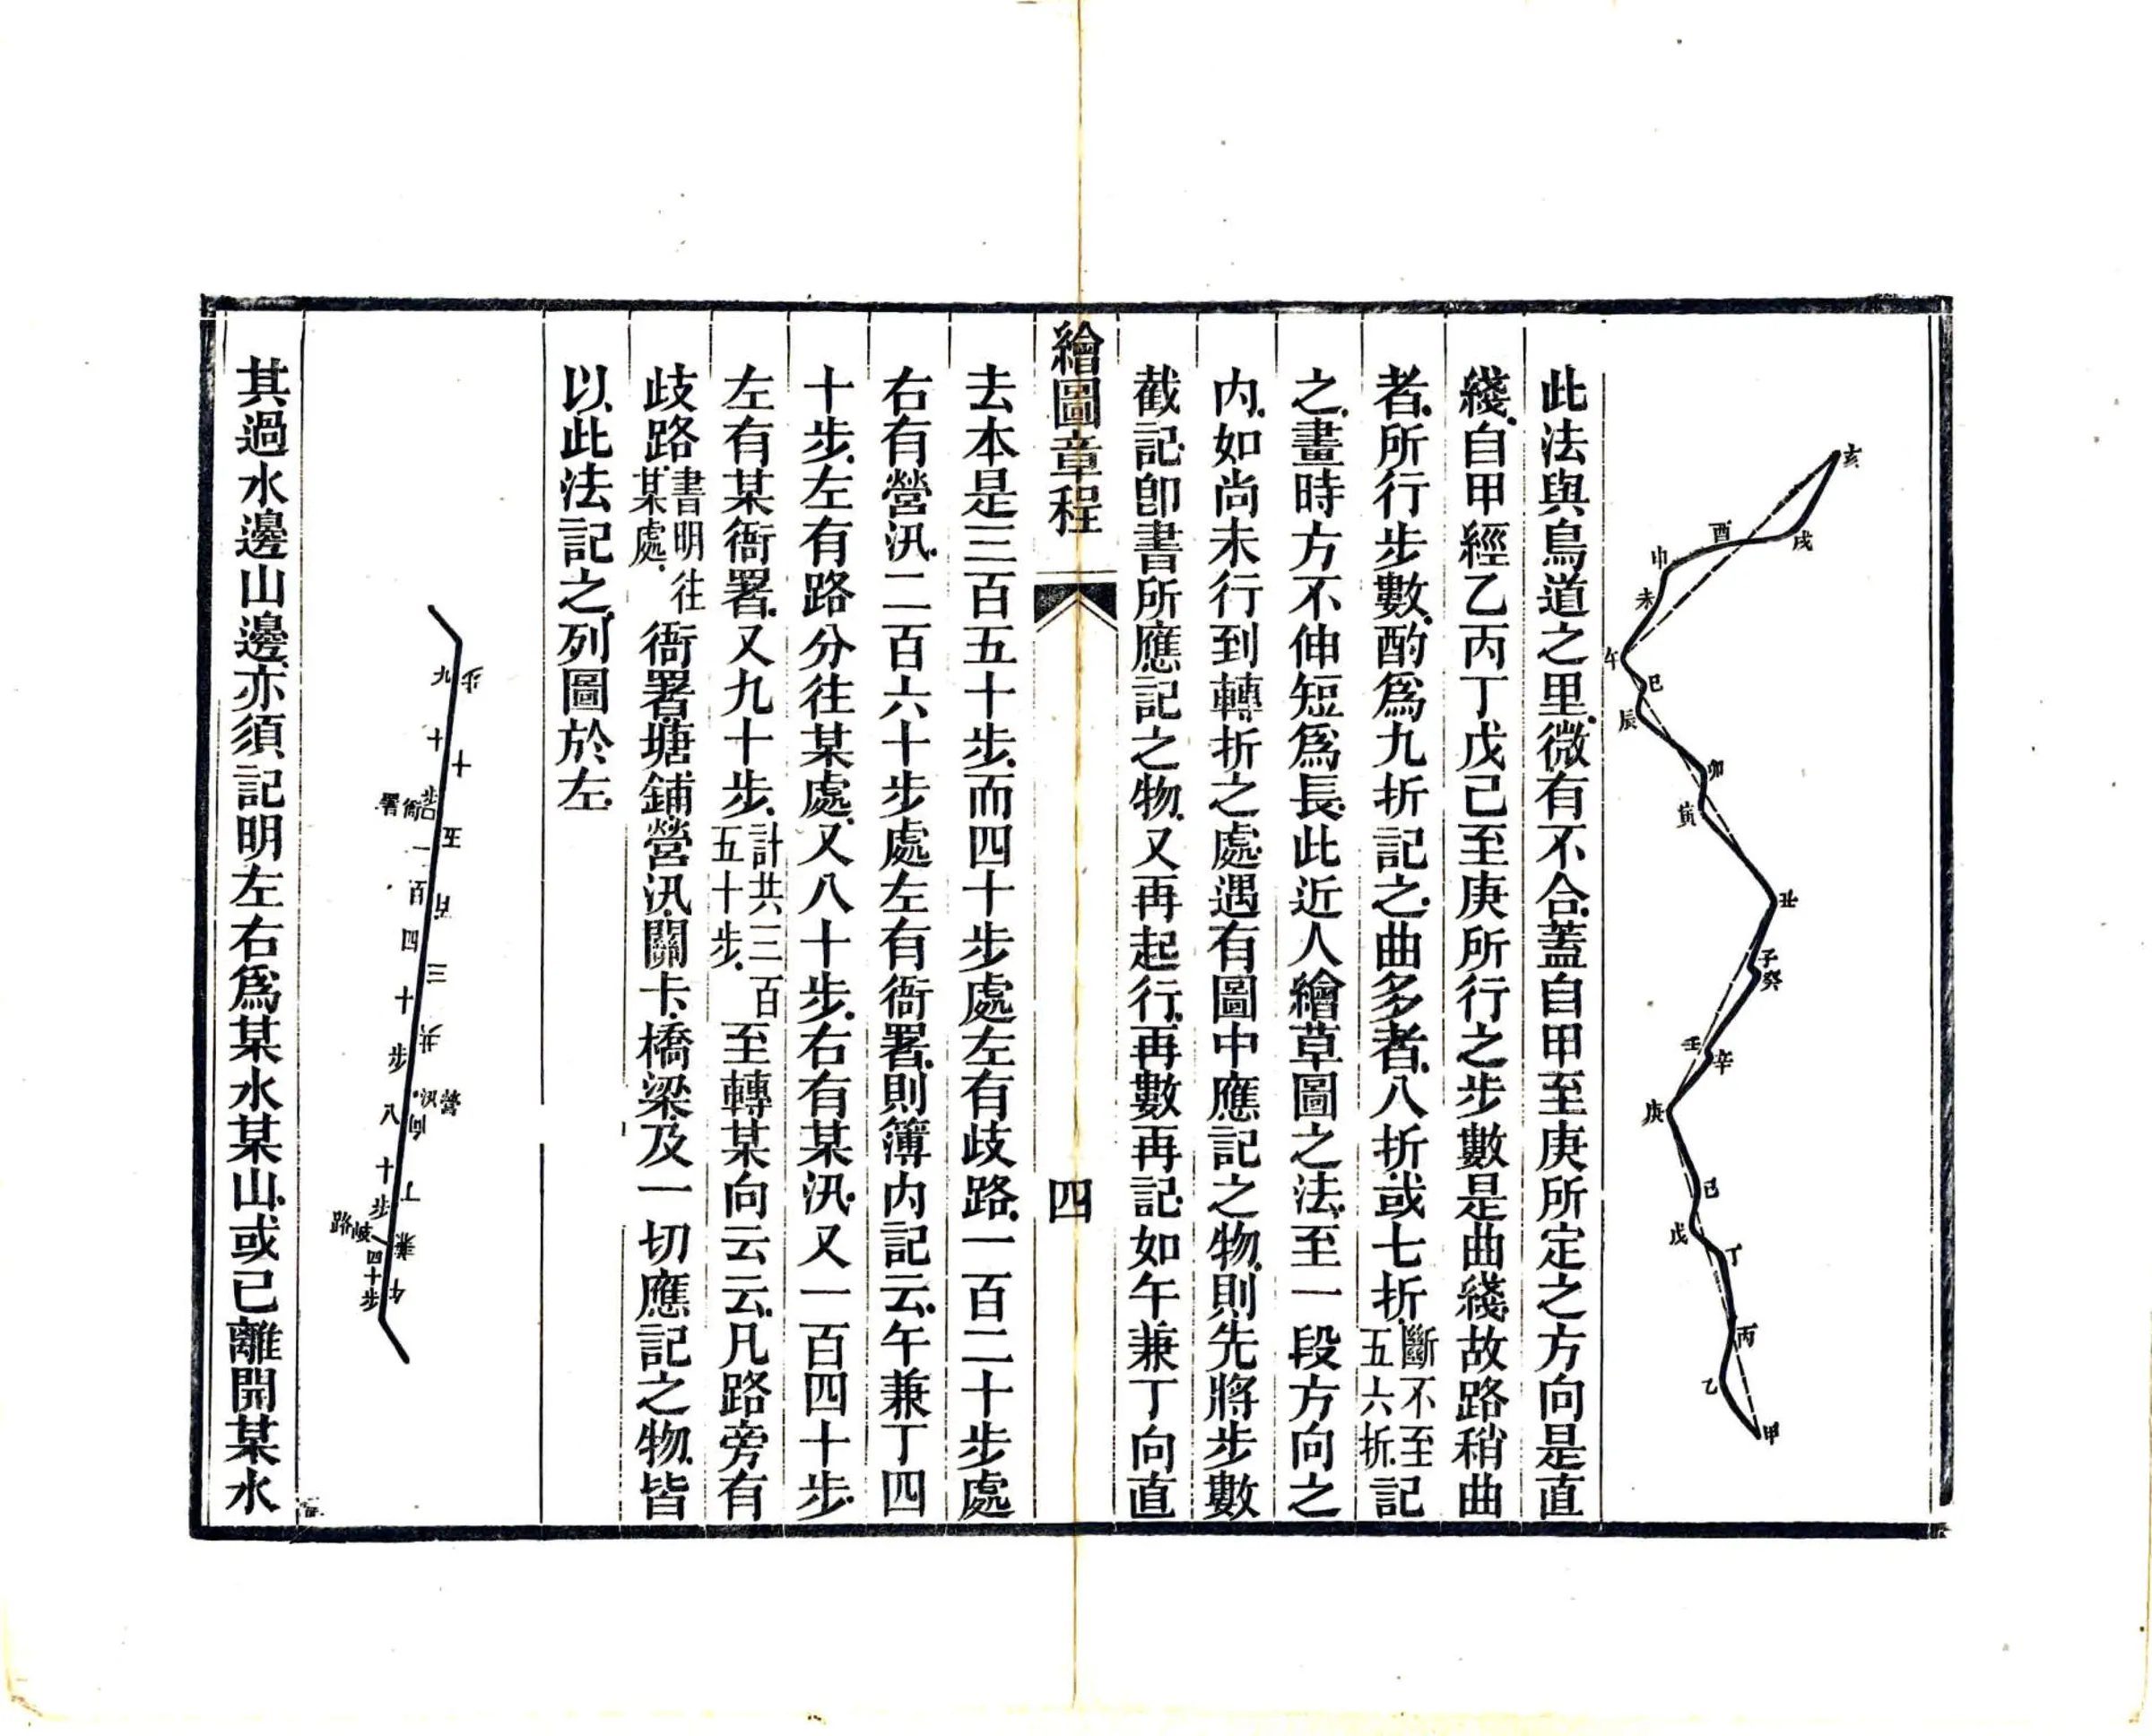 亥
戌
酉
申
未
午
巳
辰
卯
寅
丑
子
癸
壬
辛
庚
己
戊
丁
丙
乙
甲
此法與鳥道之里微有不合蓋自甲至庚所定之方向是直
綫自甲經乙丙丁戊己至庚所行之步數是曲綫故路稍曲
者所行步數酌爲九折記之曲多者八折或七折斷不至五六折記
之畫時方不伸短爲長此近人繪草圖之法至一段方向之
內如尚未行到轉折之處遇有圖中應記之物則先將步數
截記卽書所應記之物又再起行再數再記如午兼丁向直
繪圖章程
四
去本是三百五十步而四十步處左有歧路一百二十步處
右有營汛二百六十步處左有衙署則簿內記云午兼丁四
十步左有路分往某處又八十步右有某汛又一百四十步
左有某衙署又九十步計共三百五十步至轉某向云云凡路旁有
歧路書明往某處衙署塘鋪營汛關卡橋梁及一切應記之物皆
以此法記之列圖於左
午兼丁向共三百五十步
營汛
九十步
衙署
一百四十步
八十步
歧路
四十步
其過水邊山邊亦須記明左右爲某水某山或已離開某水